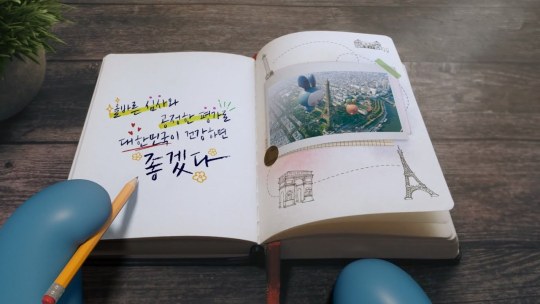 올바른 심사와
공정한 평가로
대한민국이 건강하면
좋겠다